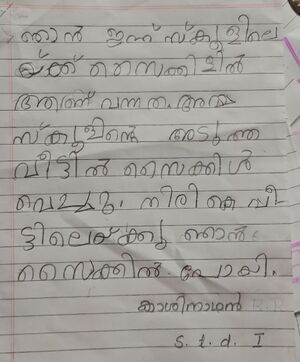 ഞാൻ ഇന്ന് സ്കൂളിലെ
യ്ക്ക് സൈക്കിളിൽ
ആണ് വന്നത്. അത്
സ്കൂളിന്റെ അടുത്ത
വീട്ടിൽ സൈക്കിൾ
വെച്ചു. തിരികെ വീ
ട്ടിലെയ്ക്കു ഞാൻ
സൈക്കിൽ പോയി.
കാശിനാഥൻ R.P
S.t.d. I